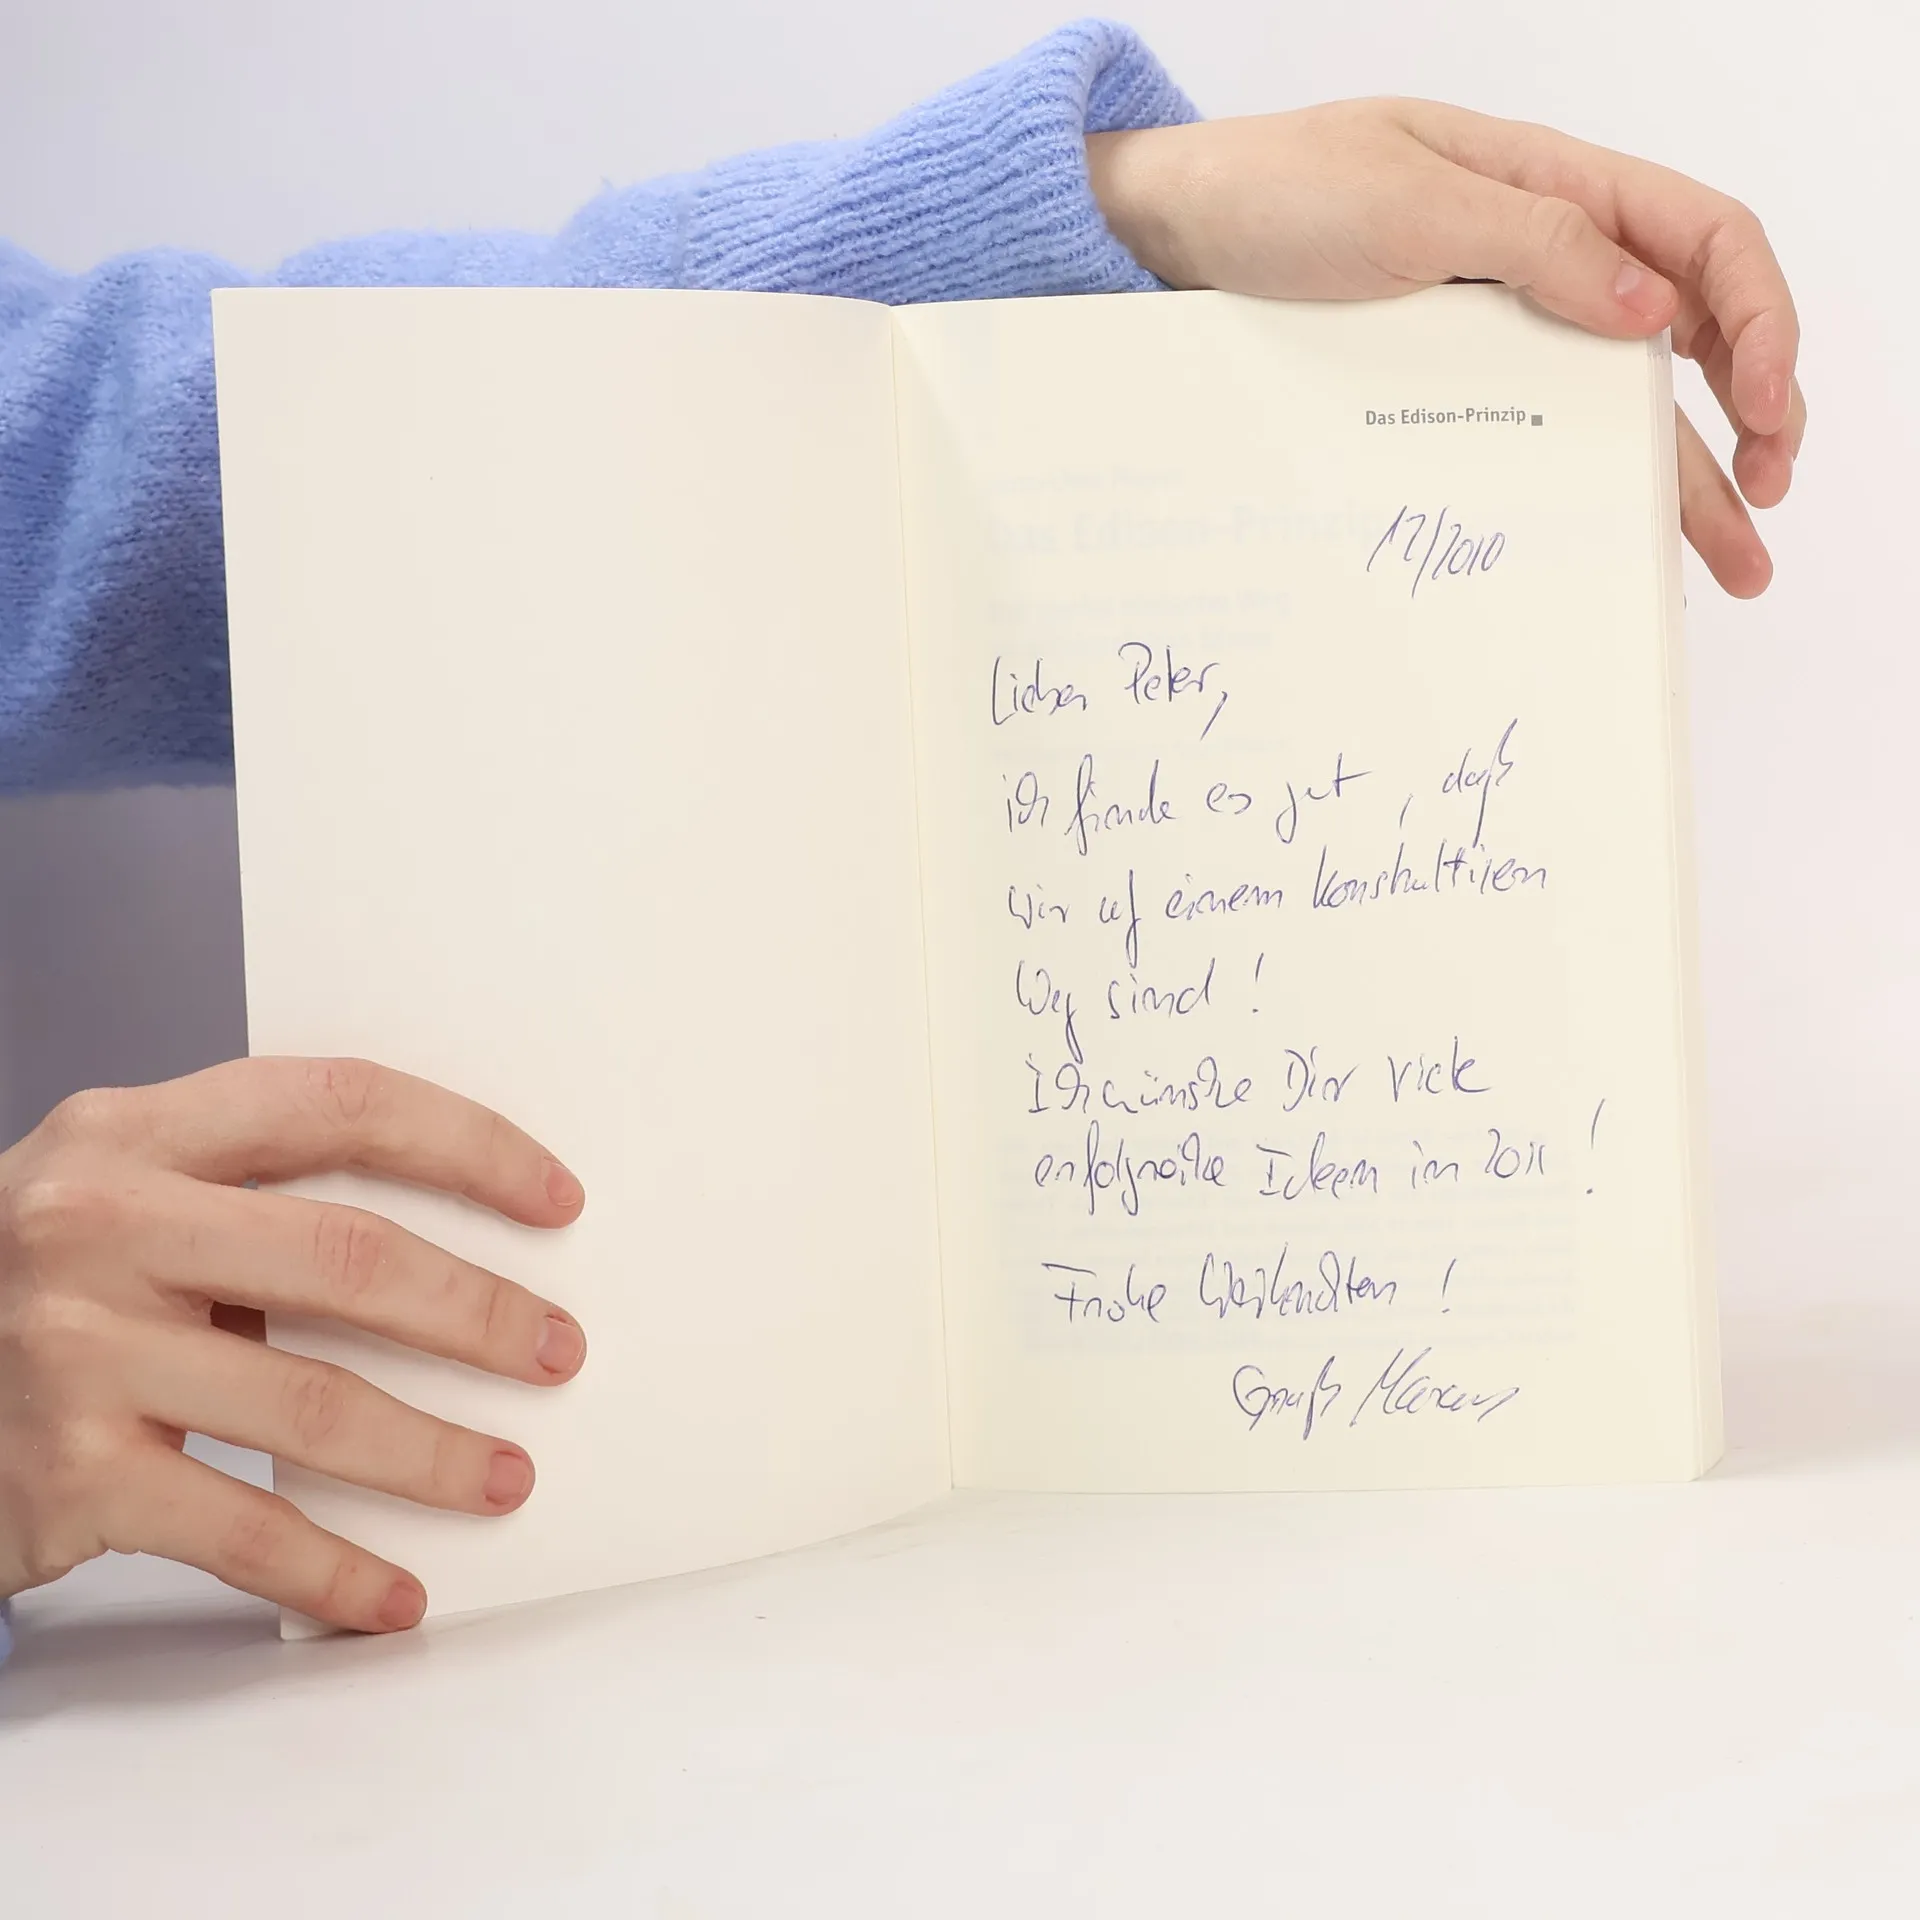 Das Edison-Prinzip
12/2010
Lieber Peter,
ich finde es gut, daß
wir auf einem konstruktiven
Weg sind!
Ich wünsche Dir viele
erfolgreiche Ideen im 2011!
Frohe Weihnachten!
Gruß Marcus